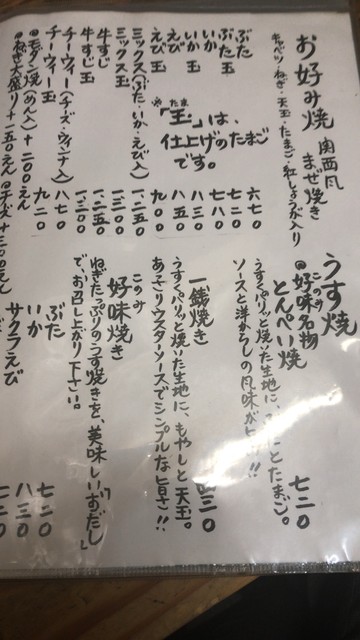 お好み焼 関西風まぜ焼き
キャベツ・ねぎ・天玉・たまご・紅しょうが入り
ぶた 六七〇
ぶた玉 七二〇
いか 七八〇
いか玉 八三〇
えび 八五〇
えび玉 九〇〇
※「玉」は、
たま
仕上げのたまご
です。
ミックス(ぶた・いか・えび入)
ミックス玉 一三〇〇
牛すじ
牛すじ玉
チーウィー(チーズ・ウィンナ入) 八七〇
チーウィー玉 九二〇
モダン焼(めん入)+二〇〇えん
ねぎ大盛り+一五〇えん
チーズ+三〇〇えん
うす焼
このみ
好味名物
とんぺい焼 七二〇
うすくパリッと焼いた生地に、
とたまご。
ソースと洋からしの風味が
!!
一銭焼き
三〇
うすくパリッと焼いた生地に、もやしと天玉。
あっさりウスターソースでシンプルな旨さ!!
このみ
好味焼き
ねぎたっぷりのうす焼きを、美味しい「おだし」
で、お召し上がり下さい。
ぶた 七二〇
いか 八三〇
サクラえび 七二〇